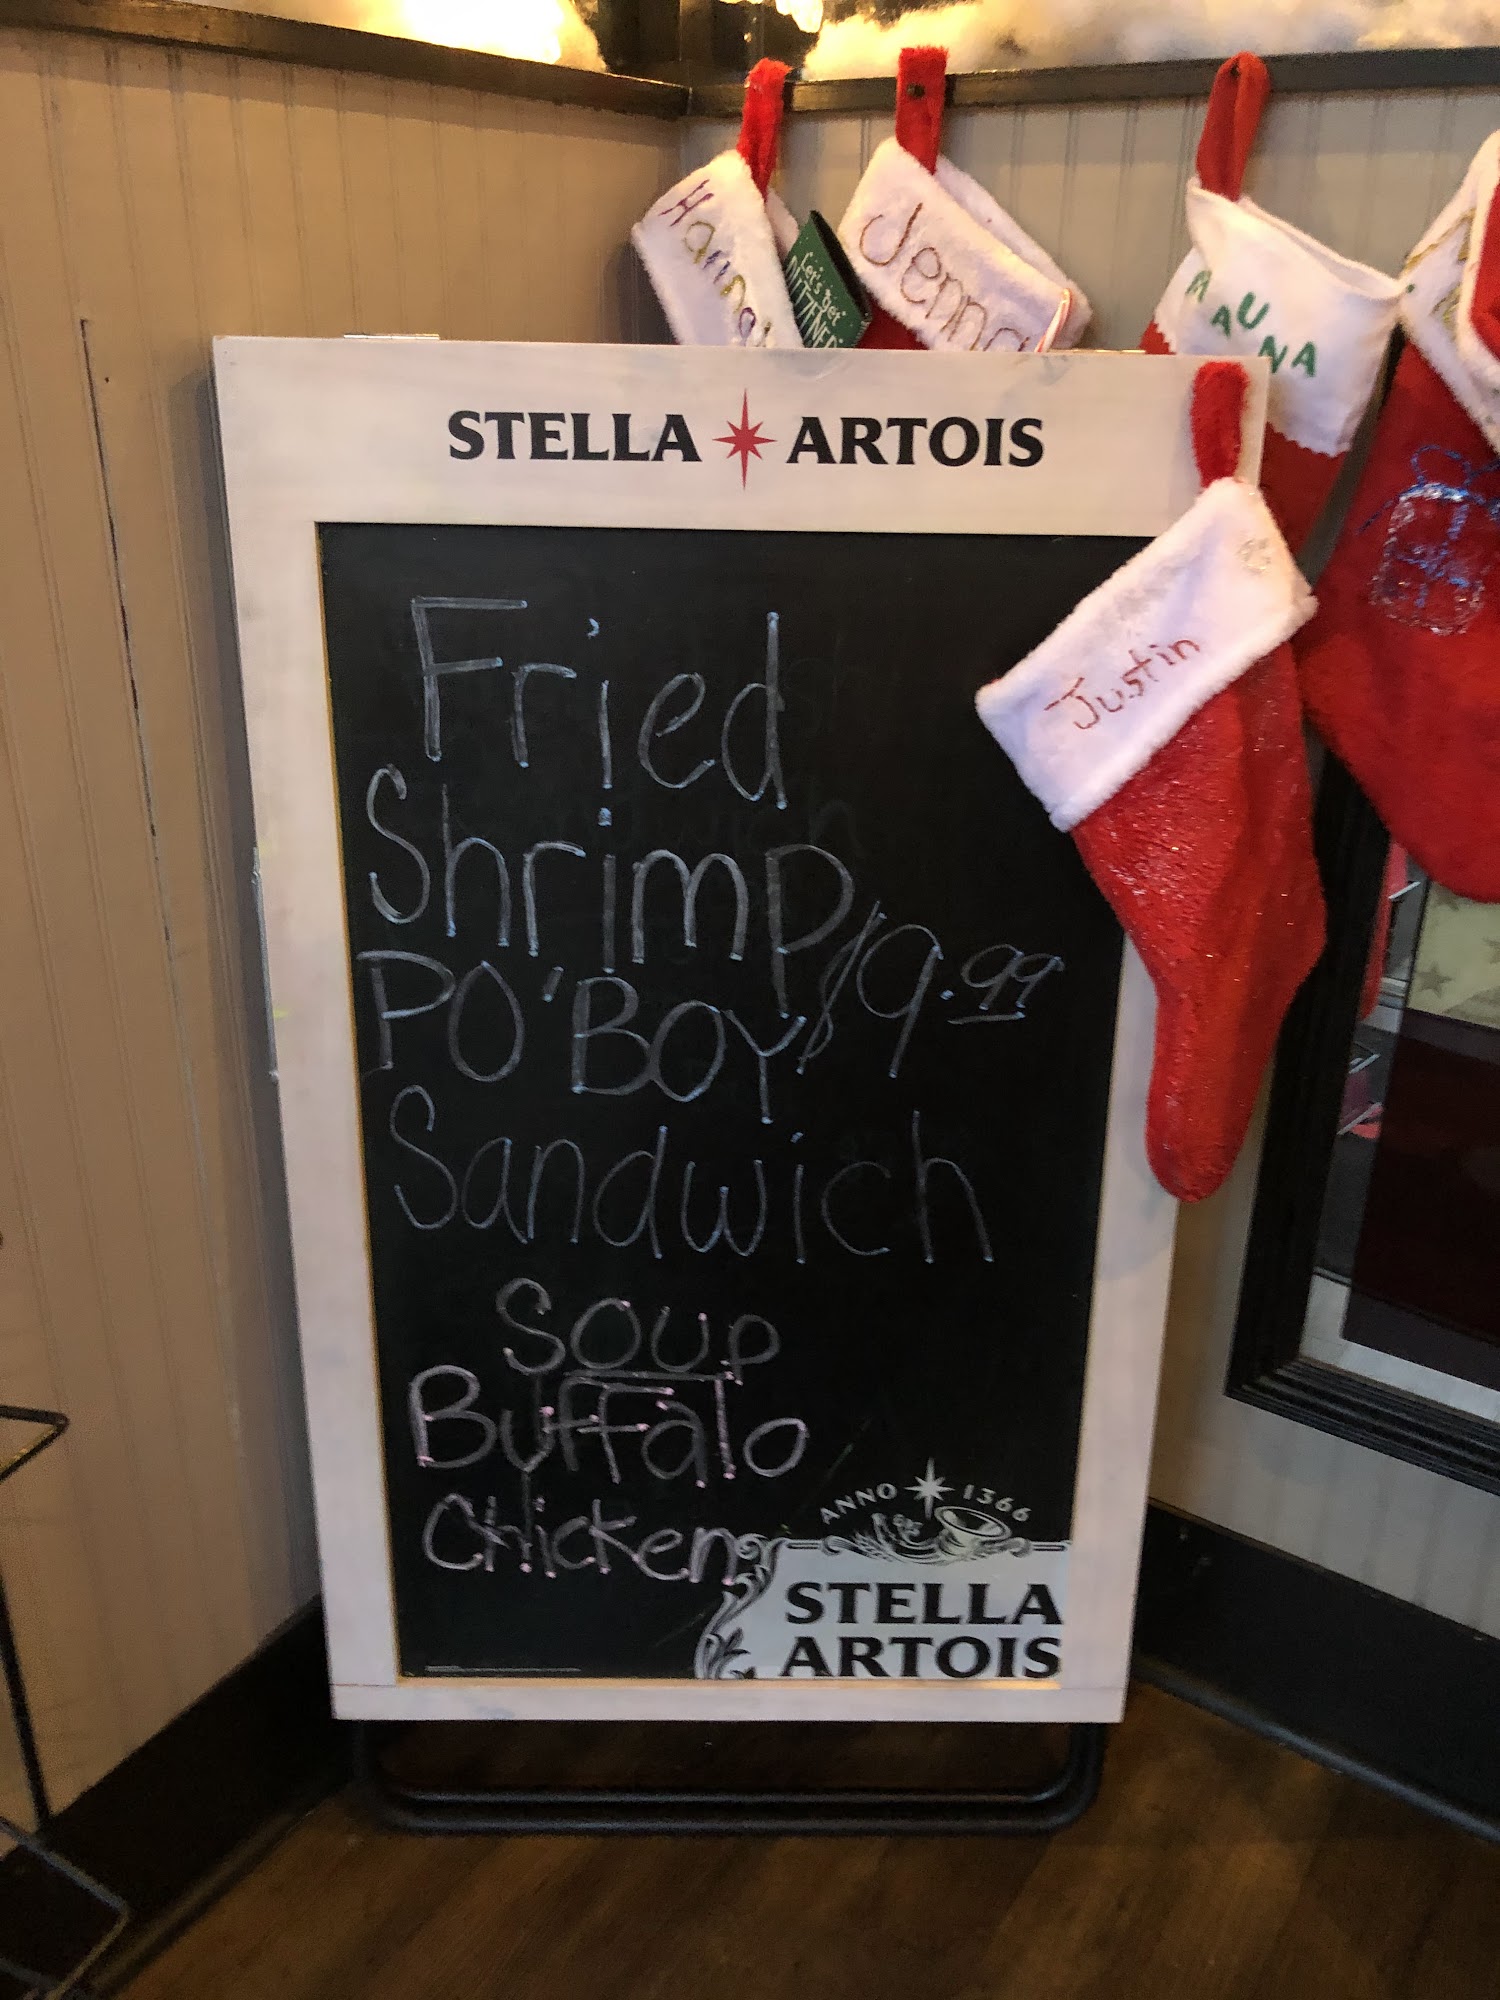 Hanna
Let's get
Jenna
MAUNA
STELLA ARTOIS
Justin
Fried
Shrimp
PO'BOY $9.99
Sandwich
Soup
Buffalo
Chicken
ANNO 1366
STELLA
ARTOIS